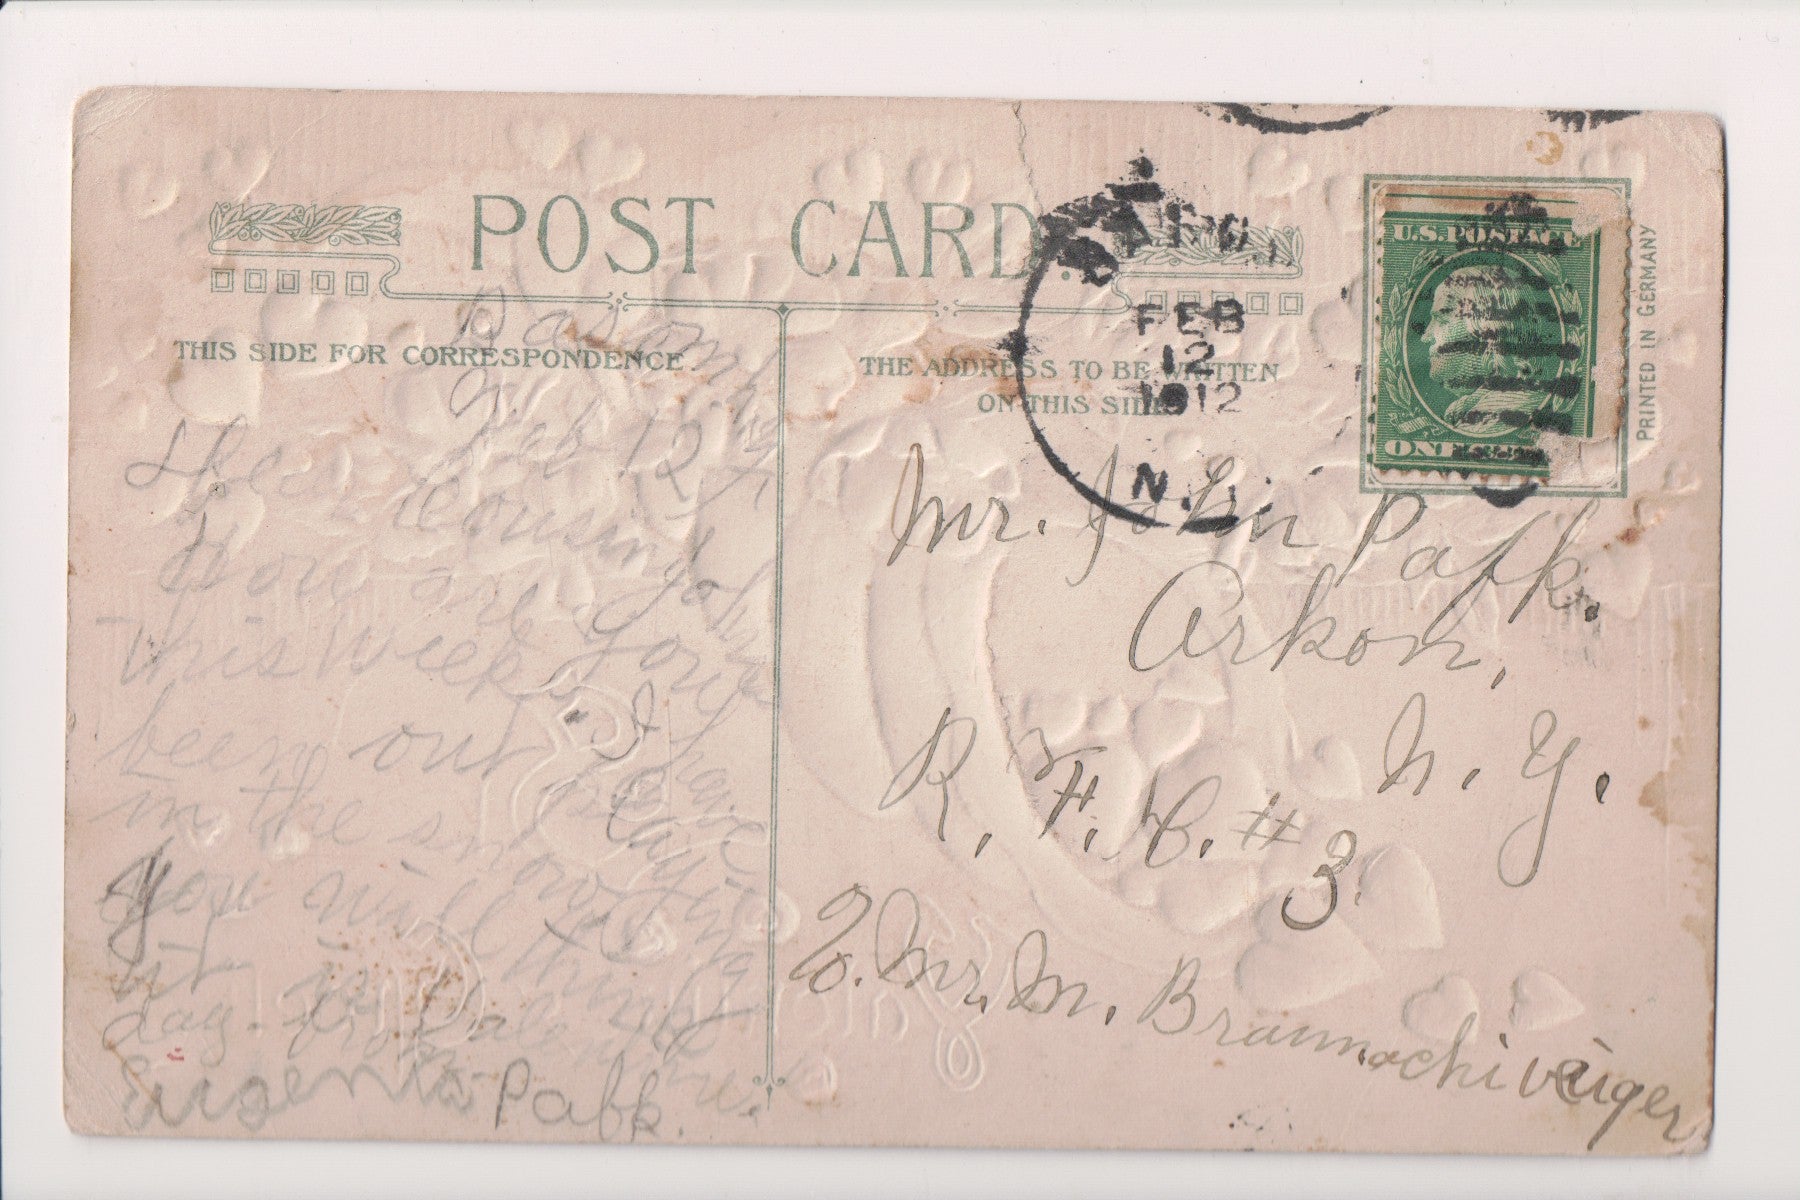 POST CARD.
THIS SIDE FOR CORRESPONDENCE
THE ADDRESS TO BE WRITTEN
ON THIS SIDE
Basom, N.Y.
Feb 12
Dear Cousin John
How are you
this week. I have
been out playing
in the snow
you will think
it is Valentine
day. from
Pafk.
FEB
12
1912
N.Y.
U.S. POSTAGE
ONE CENT
PRINTED IN GERMANY
Mr. John Pafk.
Arkon,
N. Y.
R. F. D. # 3
Mr. M.